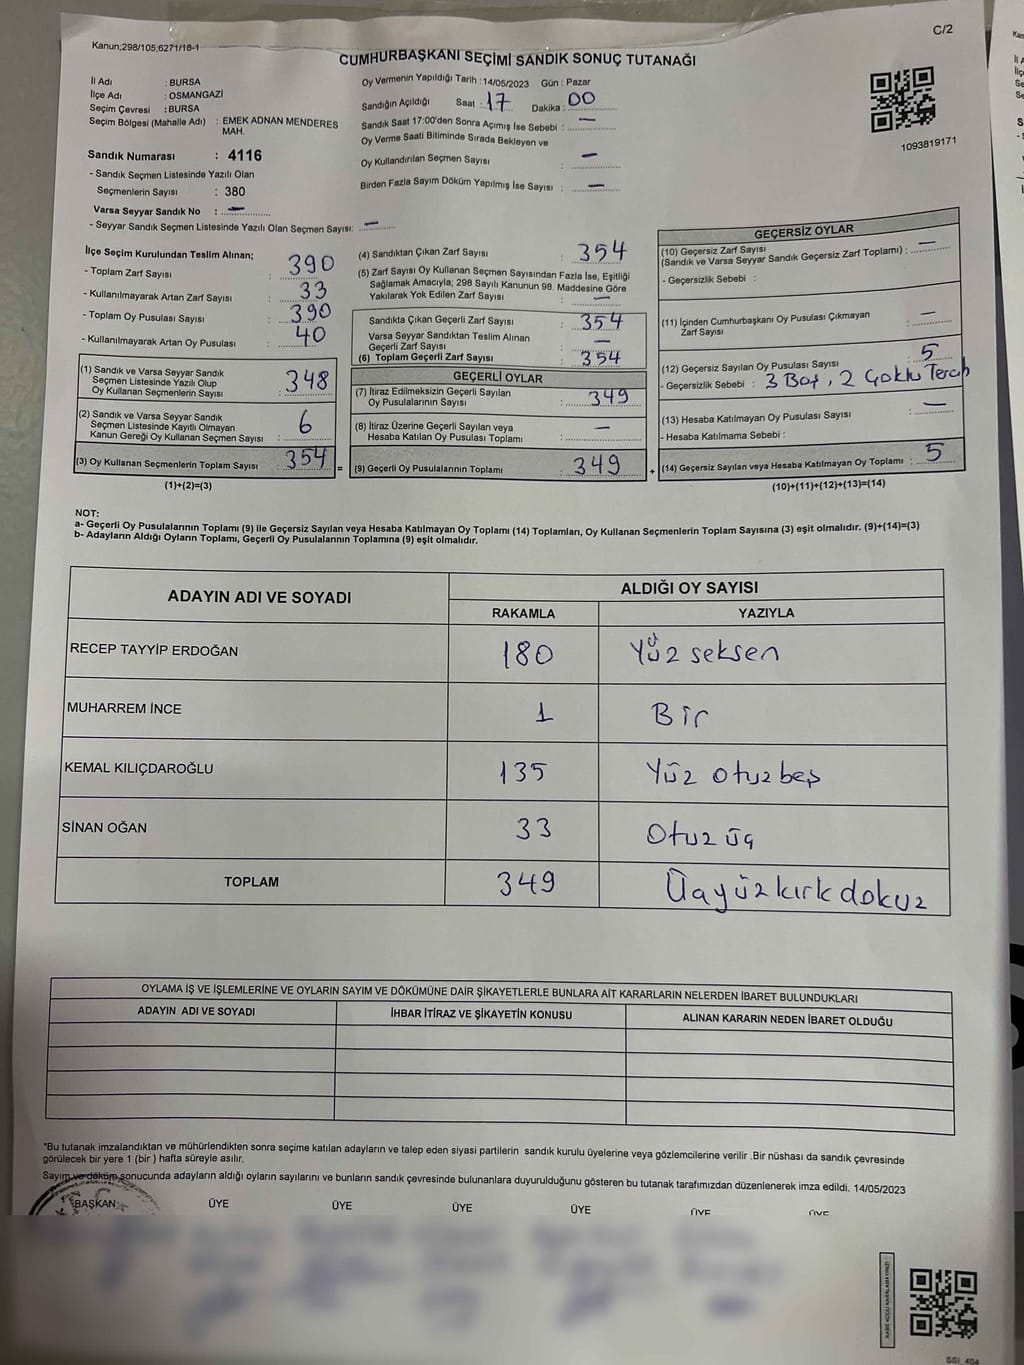 C/2
Kanun;298/105;6271/18-1
CUMHURBAŞKANI SEÇİMİ SANDIK SONUÇ TUTANAĞI
İl Adı : BURSA
İlçe Adı : OSMANGAZİ
Seçim Çevresi : BURSA
Seçim Bölgesi (Mahalle Adı) : EMEK ADNAN MENDERES
MAH.
Sandık Numarası : 4116
- Sandık Seçmen Listesinde Yazılı Olan
Seçmenlerin Sayısı : 380
Varsa Seyyar Sandık No : —
- Seyyar Sandık Seçmen Listesinde Yazılı Olan Seçmen Sayısı: —
Oy Vermenin Yapıldığı Tarih : 14/05/2023 Gün : Pazar
Sandığın Açıldığı Saat : 17 Dakika : 00
Sandık Saat 17:00'den Sonra Açımış İse Sebebi : —
Oy Verme Saati Bitiminde Sırada Bekleyen ve
Oy Kullandırılan Seçmen Sayısı : —
Birden Fazla Sayım Döküm Yapılmış İse Sayısı : —
1093819171
İlçe Seçim Kurulundan Teslim Alınan;
- Toplam Zarf Sayısı : 390
- Kullanılmayarak Artan Zarf Sayısı : 33
- Toplam Oy Pusulası Sayısı : 390
- Kullanılmayarak Artan Oy Pusulası : 40
(1) Sandık ve Varsa Seyyar Sandık
Seçmen Listesinde Yazılı Olup
Oy Kullanan Seçmenlerin Sayısı : 348
(2) Sandık ve Varsa Seyyar Sandık
Seçmen Listesinde Kayıtlı Olmayan
Kanun Gereği Oy Kullanan Seçmen Sayısı : 6
(3) Oy Kullanan Seçmenlerin Toplam Sayısı : 354
(1)+(2)=(3)
(4) Sandıktan Çıkan Zarf Sayısı : 354
(5) Zarf Sayısı Oy Kullanan Seçmen Sayısından Fazla İse, Eşitliği
Sağlamak Amacıyla; 298 Sayılı Kanunun 98. Maddesine Göre
Yakılarak Yok Edilen Zarf Sayısı : —
Sandıkta Çıkan Geçerli Zarf Sayısı : 354
Varsa Seyyar Sandıktan Teslim Alınan
Geçerli Zarf Sayısı : —
(6) Toplam Geçerli Zarf Sayısı : 354
GEÇERLİ OYLAR
(7) İtiraz Edilmeksizin Geçerli Sayılan
Oy Pusulalarının Sayısı : 349
(8) İtiraz Üzerine Geçerli Sayılan veya
Hesaba Katılan Oy Pusulası Toplamı : —
= (9) Geçerli Oy Pusulalarının Toplamı : 349
GEÇERSİZ OYLAR
(10) Geçersiz Zarf Sayısı
(Sandık ve Varsa Seyyar Sandık Geçersiz Zarf Toplamı) : —
- Geçersizlik Sebebi :
(11) İçinden Cumhurbaşkanı Oy Pusulası Çıkmayan
Zarf Sayısı : —
(12) Geçersiz Sayılan Oy Pusulası Sayısı : 5
- Geçersizlik Sebebi : 3 Boş, 2 Çoklu Tercih
(13) Hesaba Katılmayan Oy Pusulası Sayısı : —
- Hesaba Katılmama Sebebi :
+ (14) Geçersiz Sayılan veya Hesaba Katılmayan Oy Toplamı : 5
(10)+(11)+(12)+(13)=(14)
NOT:
a- Geçerli Oy Pusulalarının Toplamı (9) ile Geçersiz Sayılan veya Hesaba Katılmayan Oy Toplamı (14) Toplamları, Oy Kullanan Seçmenlerin Toplam Sayısına (3) eşit olmalıdır. (9)+(14)=(3)
b- Adayların Aldığı Oyların Toplamı, Geçerli Oy Pusulalarının Toplamına (9) eşit olmalıdır.
ADAYIN ADI VE SOYADI ALDIĞI OY SAYISI
RAKAMLA YAZIYLA
RECEP TAYYİP ERDOĞAN 180 Yüz seksen
MUHARREM İNCE 1 Bir
KEMAL KILIÇDAROĞLU 135 Yüz otuz beş
SİNAN OĞAN 33 Otuz üç
TOPLAM 349 Üçyüz kırk dokuz
OYLAMA İŞ VE İŞLEMLERİNE VE OYLARIN SAYIM VE DÖKÜMÜNE DAİR ŞİKAYETLERLE BUNLARA AİT KARARLARIN NELERDEN İBARET BULUNDUKLARI
ADAYIN ADI VE SOYADI İHBAR İTİRAZ VE ŞİKAYETİN KONUSU ALINAN KARARIN NEDEN İBARET OLDUĞU
*Bu tutanak imzalandıktan ve mühürlendikten sonra seçime katılan adayların ve talep eden siyasi partilerin sandık kurulu üyelerine veya gözlemcilerine verilir .Bir nüshası da sandık çevresinde
görülecek bir yere 1 (bir ) hafta süreyle asılır.
Sayım ve döküm sonucunda adayların aldığı oyların sayılarını ve bunların sandık çevresinde bulunanlara duyurulduğunu gösteren bu tutanak tarafımızdan düzenlenerek imza edildi. 14/05/2023
BAŞKAN ÜYE ÜYE ÜYE ÜYE ÜYE ÜYE